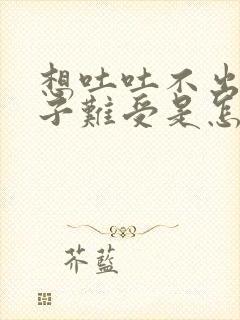 想吐吐不出
子难受是怎
芥蓝